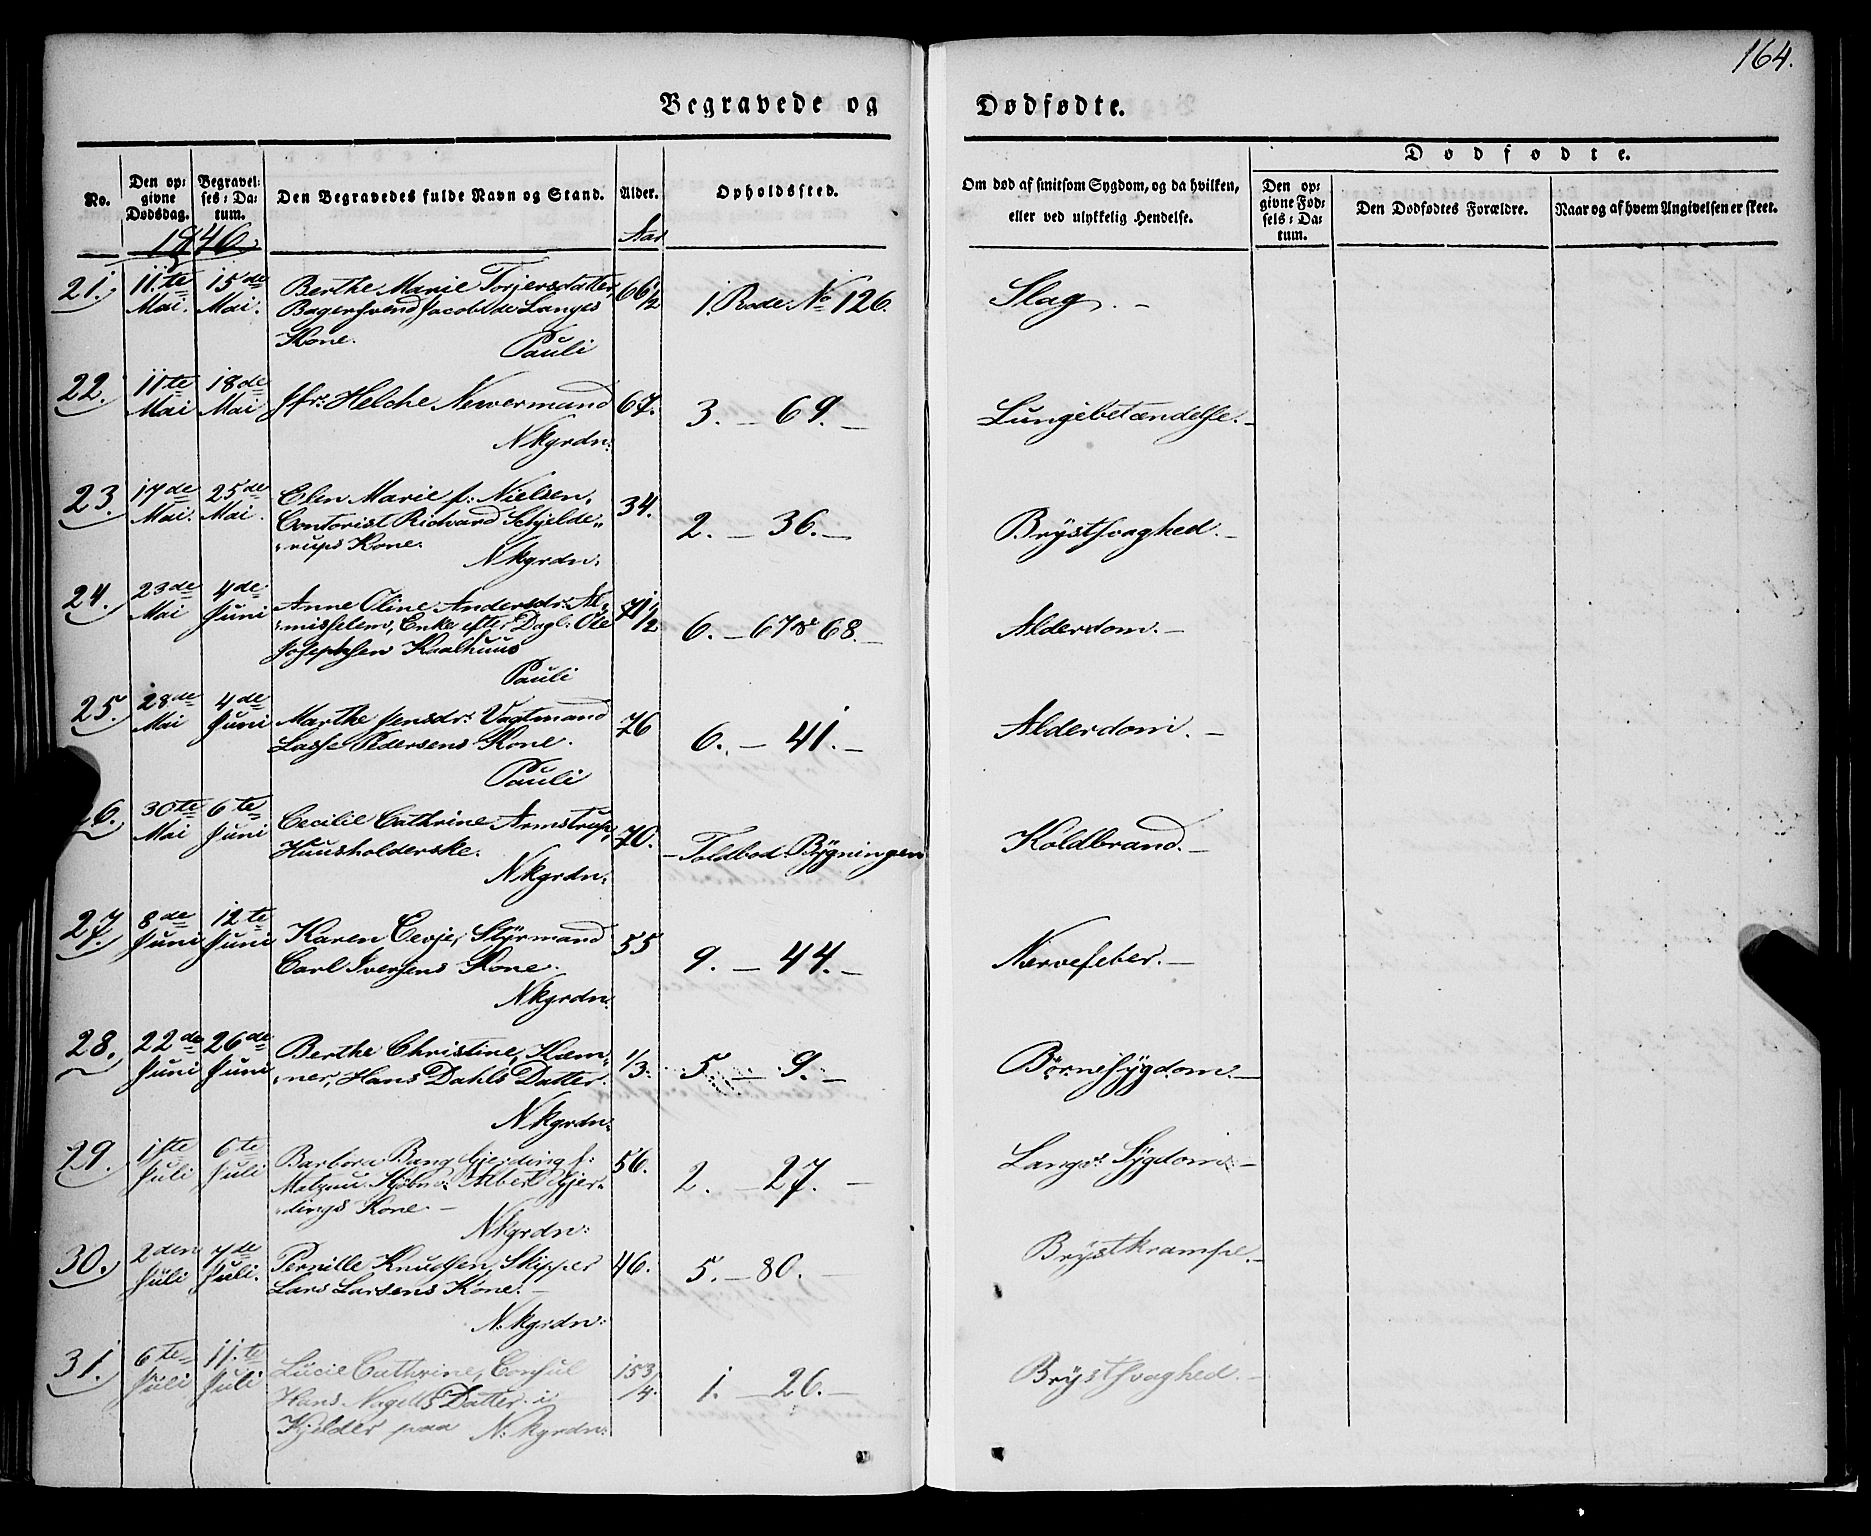 164.
Begravede og Dødfødte.
No. Den opgivne Dødsdag. Begravelses-Datum. Den Begravedes fulde Navn og Stand. Alder. Opholdssted. Om død af smitsom Sygdom, og da hvilken, eller ved ulykkelig Hendelse. Dødfødte.
Den opgivne Fødsels-Datum. Den Dødfødtes Forældre. Naar og af hvem Angivelsen er skeet.
1846. Aar
21. 11te Mai. 15de Mai. Berthe Marie Torjersdatter, 66 1/2 1. Rode No 126. Slag. –
Bagersvend Jacob de Langes
Kone. Pauli
22. 11te Mai 18de Mai Jfr. Helche Newermand 67. 3. – 69. – Lungebetændelse. –
Nkgrdn:
23. 17de Mai. 25de Mai. Elen Marie f: Nielsen, 34. 2. – 36. – Brÿstsvaghed. –
Contorist Richard Schjelde„
„rups Kone.
Nkgrdn:
24. 23de Mai 4de Juni Anne Oline Andersdr: Al„ 71 1/2 6. – 67 & 68. – Alderdom. –
„misselem, Enke efter Dagl: Ole
Josephsen Kaalhuus
Pauli
25. 28de Mai 4de Juni Marthe Jensdr: Vagtmand 76 6. – 41. – Alderdom. –
Lasse Pedersens Kone.
Pauli
26. 30te Mai 6te Juni Cecilie Cathrine Armstrup, 70. – Toldbod-Bÿgningen Koldbrand. –
Huusholderske.
Nkgrdn:
27. 8de Juni 12te Juni Karen Eerje, Stÿrmand 55 9. – 44. – Nervefeber. –
Carl Iversens Kone.
Nkgrdn:
28. 22de Juni 26de Juni Berthe Christine, Kæm„ 1/3. 5. – 9. – Børnesÿgdom. –
„ner, Hans Dahls Datter.
Nkgrdn:
29. 1ste Juli 6te Juli Barbora Bang Gjerding f: 56. 2. – 27. – Langv: Sÿgdom. –
Albert Gjer„
„dings Kone. –
Nkgrdn:
30. 2den Jüli 7de Juli. Pernille Knudsen, Skipper 46. 5. – 80. – Brÿstkrampe. –
Lars Larsens Kone. –
N.kgrdn:
31. 6te Jüli 11.te Juli Lucie Cathrine, Consul 15 3/4. 1. – 26. – Brÿstsvaghed. –
Hans Nagells Datter i
Kjelder paa N.kgrdn: